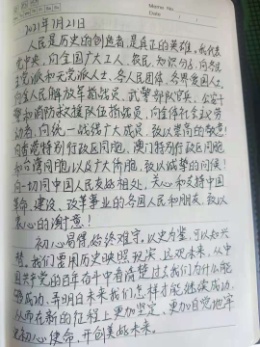 Memo No.
Date
2021年7月21日
人民是历史的创造者,是真正的英雄,我代表
党中央,向全国广大工人、农民、知识分子,向各民
主党派和无党派人士、各人民团体、各界爱国人士,
向人民解放军指战员、武警部队官兵、公安干
警和消防救援队伍指战员,向全体社会主义劳
动者,向统一战线广大成员,致以崇高的敬意!
向香港特别行政区同胞、澳门特别行政区同胞
和台湾同胞以及广大侨胞,致以诚挚的问候!
向一切同中国人民友好相处,关心和支持中国
革命、建设、改革事业的各国人民和朋友,致以
衷心的谢意!
初心易得,始终难守。以史为鉴,可以知兴
替。我们要用历史映照现实、远观未来,从中
国共产党的百年奋斗中看清楚过去我们为什么能
够成功、弄明白未来我们怎样才能继续成功,
从而在新的征程上更加坚定、更加自觉地牢
记初心使命、开创美好未来。